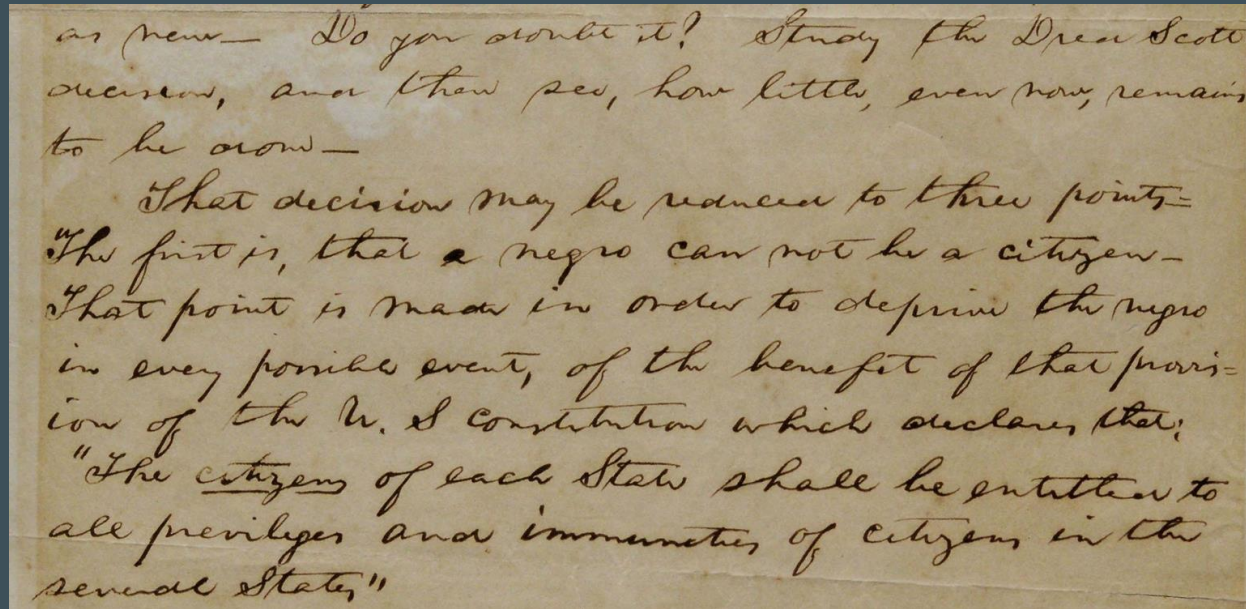 as new — Do you doubt it? Study the Dred Scott
decision, and then see, how little, even now, remains
to be done —
That decision may be reduced to three points =
The first is, that a negro can not be a citizen —
That point is made in order to deprive the negro
in every possible event, of the benefit of that provis=
ion of the U. S constitution which declares that:
"The citizens of each State shall be entitled to
all previleges and immunities of citizens in the
several States"